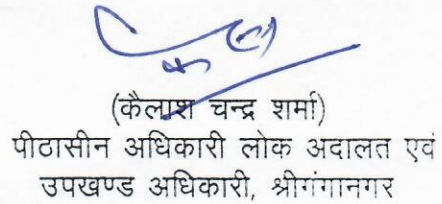 (कैलाश चन्द्र शर्मा)
पीठासीन अधिकारी लोक अदालत एवं
उपखण्ड अधिकारी, श्रीगंगानगर